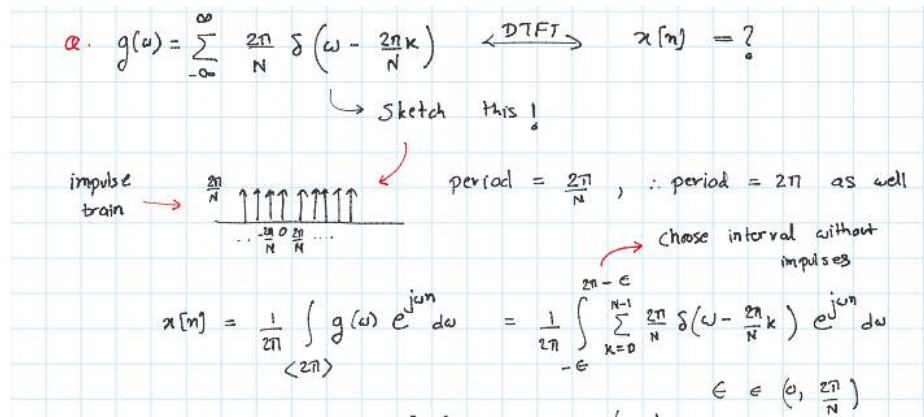 Q. g(ω) = ∑_{-∞}^{∞} 2π/N δ(ω - 2π/N k) <—DTFT—> x[n] = ?
↳ Sketch this !
impulse train → 2π/N period = 2π/N , ∴ period = 2π as well
... -2π/N 0 2π/N ...
choose interval without impulses
x[n] = 1/2π ∫_{<2π>} g(ω) e^{jωn} dω = 1/2π ∫_{-ϵ}^{2π-ϵ} ∑_{k=0}^{N-1} 2π/N δ(ω - 2π/N k) e^{jωn} dω
ϵ ∈ (0, 2π/N)